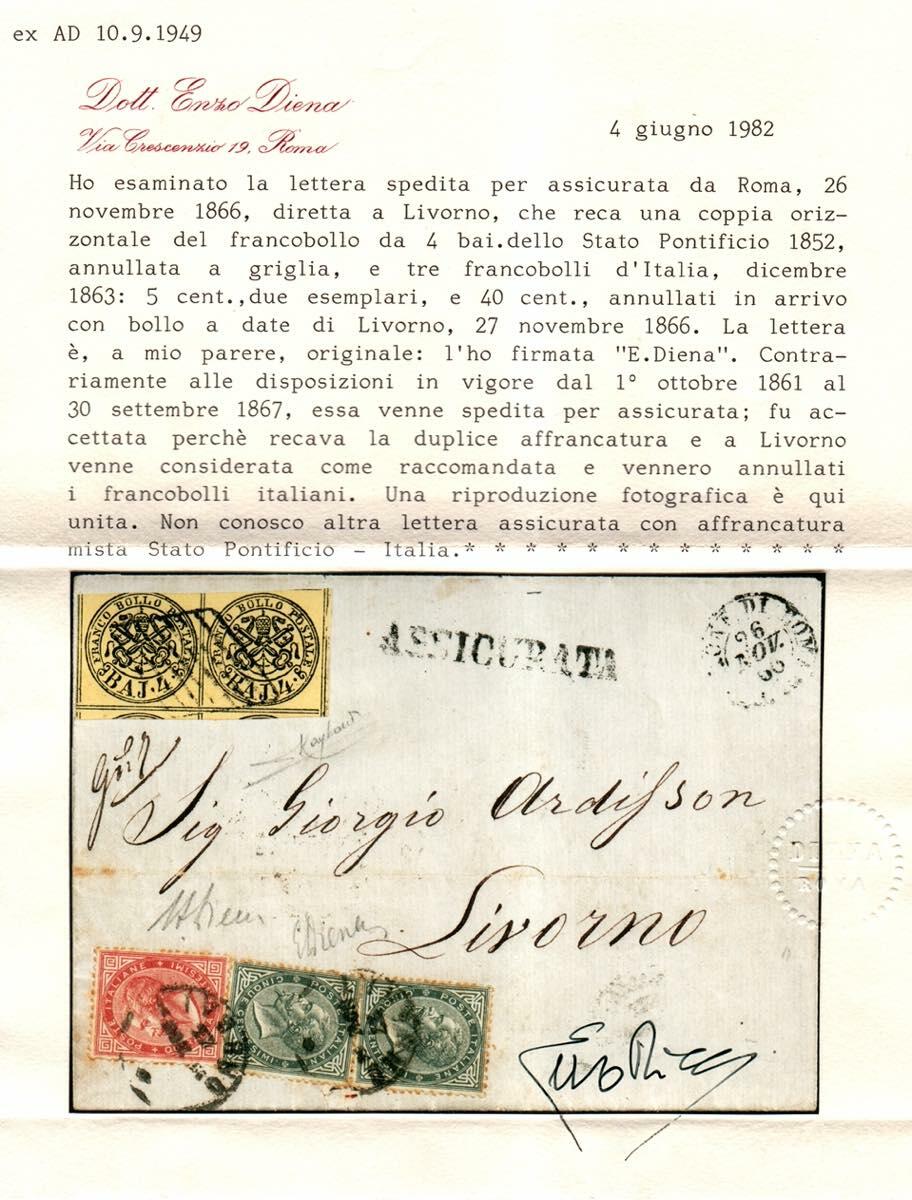 ex AD 10.9.1949
Dott. Enzo Diena
Via Crescenzio 19, Roma
4 giugno 1982
Ho esaminato la lettera spedita per assicurata da Roma, 26
novembre 1866, diretta a Livorno, che reca una coppia oriz-
zontale del francobollo da 4 bai.dello Stato Pontificio 1852,
annullata a griglia, e tre francobolli d'Italia, dicembre
1863: 5 cent.,due esemplari, e 40 cent., annullati in arrivo
con bollo a date di Livorno, 27 novembre 1866. La lettera
è, a mio parere, originale: l'ho firmata "E.Diena". Contra-
riamente alle disposizioni in vigore dal 1° ottobre 1861 al
30 settembre 1867, essa venne spedita per assicurata; fu ac-
cettata perchè recava la duplice affrancatura e a Livorno
venne considerata come raccomandata e vennero annullati
i francobolli italiani. Una riproduzione fotografica è qui
unita. Non conosco altra lettera assicurata con affrancatura
mista Stato Pontificio - Italia.* * * * * * * * * * * * *
FRANCO BOLLO POSTALE FRANCO BOLLO POSTALE
BAJ.4 BAJ.4
ASSICURATA
26
NOV
66
Sig Giorgio Ardisson
Livorno
DIENA
ROMA
EDiena
POSTE ITALIANE
CINQUE CENTESIMI POSTE ITALIANE
POSTE ITALIANE